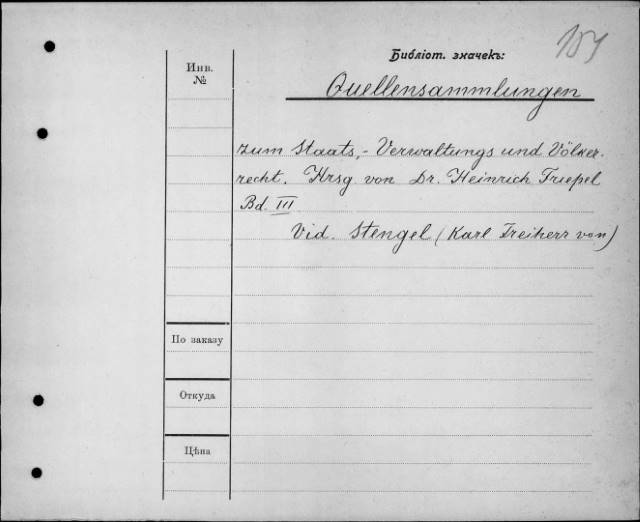 151
Библіот. значекъ:
Инв.
№
Quellensammlungen
zum Staats,- Verwaltungs und Völker-
recht. Hrsg. von Dr. Heinrich Triepel
Bd. III
Vid. Stengel (Karl Freiherr von)
По заказу
Откуда
Цѣна